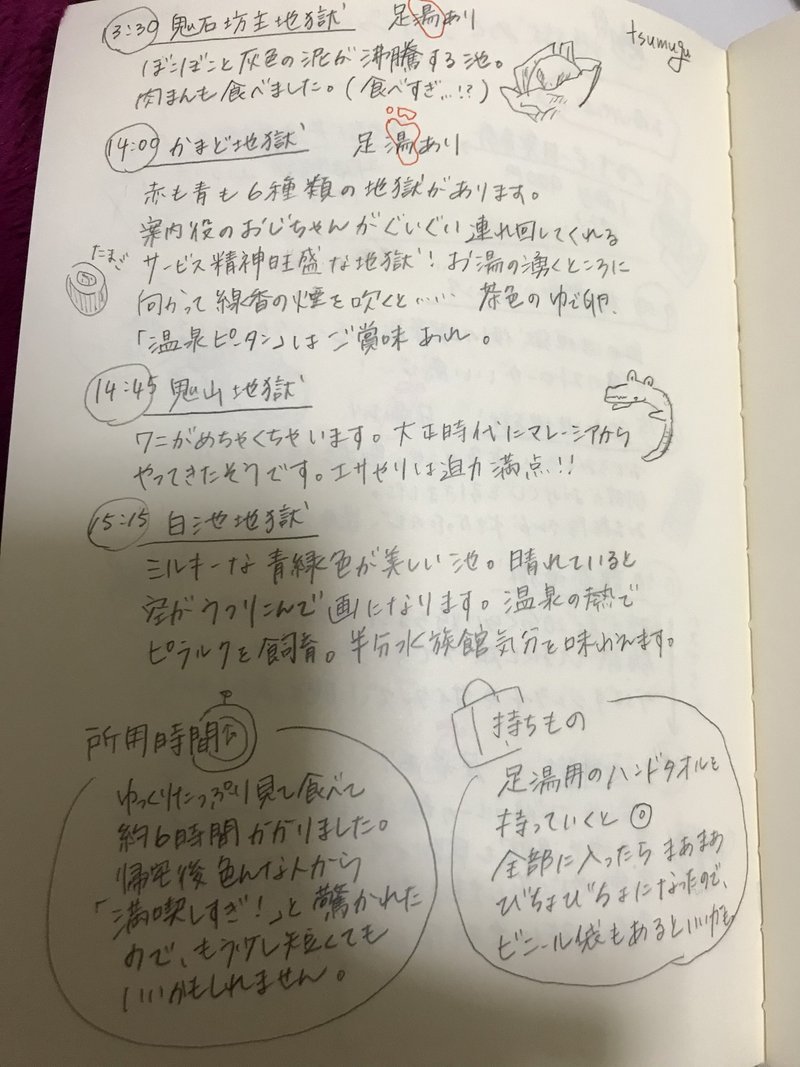 tsumugu
13:30 鬼石坊主地獄 足湯あり
ぼこぼこと灰色の泥が沸騰する池。
肉まんも食べました。(食べすぎ…!?)
14:09 かまど地獄 足湯あり
赤も青も6種類の地獄があります。
案内役のおじちゃんがぐいぐい連れ回してくれる
サービス精神旺盛な地獄!お湯の湧くところに
向かって線香の煙を吹くと…… 茶色のゆで卵、
「温泉ピータン」はご賞味あれ。
たまご
14:45 鬼山地獄
ワニがめちゃくちゃいます。大正時代にマレーシアから
やってきたそうです。エサやりは迫力満点!!
15:15 白池地獄
ミルキーな青緑色が美しい池。晴れていると
空がうつりこんで画になります。温泉の熱で
ピラルクを飼育。半分水族館気分を味わえます。
所用時間
ゆっくりたっぷり見て食べて
約6時間かかりました。
帰宅後色んな人から
「満喫しすぎ!」と驚かれた
ので、もう少し短くても
いいかもしれません。
持ちもの
足湯用のハンドタオルを
持っていくと◎
全部に入ったらまあまあ
びちょびちょになったので、
ビニール袋もあるといいかも